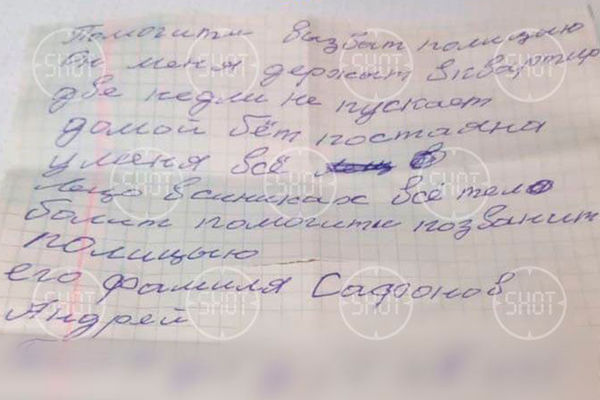 Помогити вызвыт полицыю
Он меня держыт в квартире
две недли не пускает
домой бёт постаяна
у меня всё
лецо в синиках всё тело
болит помогити позванит
полицыю
его фамиля Сафронов
Андрей
SHOT
SHOT
SHOT
SHOT
SHOT
SHOT
SHOT
SHOT
SHOT
SHOT
SHOT
SHOT